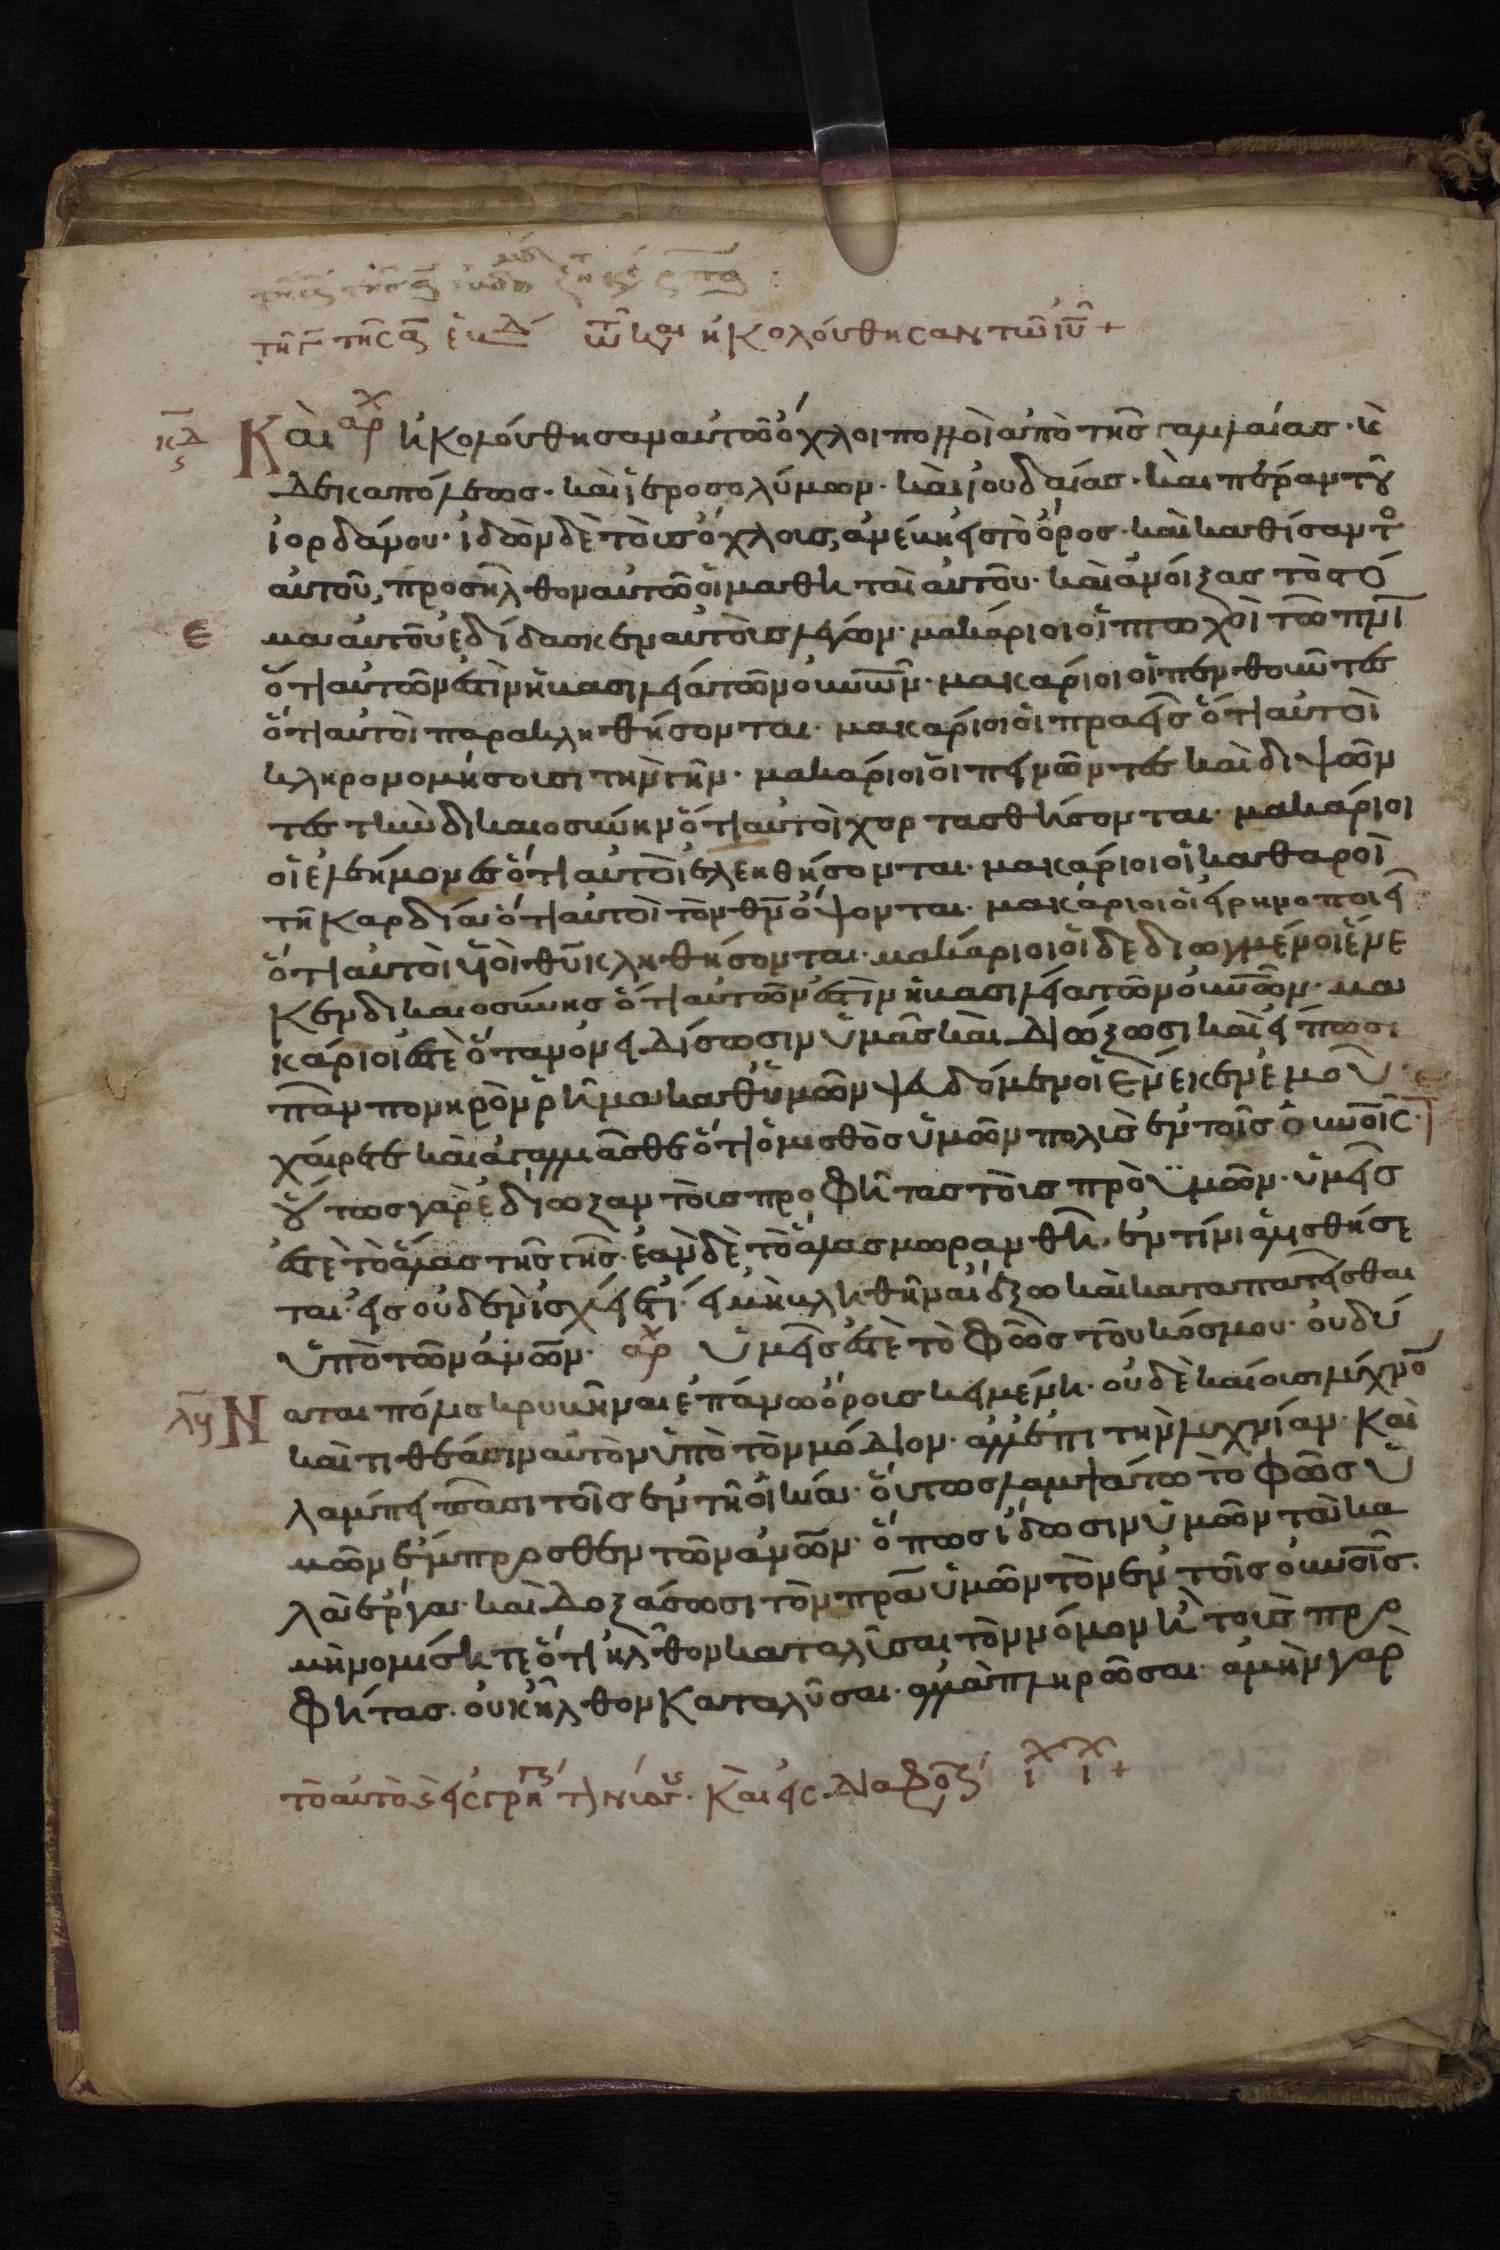 τῆ γ τῆς α ἑβδ τῶ καιρῶ ἠκολούθησαν τῶ ιυ +
Και αρχ ἠκολούθησαν αυτῶ ὄχλοι πολλοὶ απὸ τῆς γαλιλαίας · κὲ
Δεκαπόλεως · καὶ ἱεροσολύμων · καὶ ϊουδαίας · και πέραν τοῦ
ἰορδάνου · ἰδὼν δὲ τοὺς ὄχλους, ἀνέβη εἰς τὸ ὄρος · καὶ καθίσαντο
αυτοῦ, προσῆλθον αυτῶ οἱ μαθηταὶ αυτοῦ · καὶ ἀνοίξας τὸ στό
ε
μα αυτοῦ ἐδίδασκεν αὐτοὺς λέγων · μακάριοι οἱ πτωχοὶ τῶ πνι
ὅτι αυτῶν ἐστὶν ἡ βασιλεία τῶν ουνων · μακάριοι οἱ πενθουντες
ὅτι αυτοὶ παρακληθήσονται · μακάριοι οἱ πραεῖς ὅτι αυτοὶ
κληρονομήσουσι τὴν γῆν · μακάριοι οἱ πεινῶντες καὶ διψῶν
τες τὴν δικαιοσύνην ὅτι αυτοὶ χορτασθήσονται · μακάριοι
οἱ ἐλεήμονες ὅτι αυτοὶ ἐλεηθήσονται · μακάριοι οἱ καθαροὶ
τῆ καρδία ὅτι αυτοὶ τὸν θν ὄψονται · μακάριοι οἱ εἰρηνοποιεί
ὅτι αυτοὶ υἱοὶ θυ κληθήσονται · μακάριοι οἱ δεδιωγμένοι ἕνε
κεν δικαιοσύνης ὅτι αυτῶν ἐστὶν ἡ βασιλεία τῶν ουνων · μα
κάριοι ἐστὲ ὅταν ὀνειδίσωσιν ὑμᾶς καὶ διώξωσι καὶ εἴπωσι
πᾶν πονηρὸν ῥῆμα καθ ὑμῶν ψευδόμενοι ἕνεκεν ἐμοῦ
χαίρετε καὶ ἀγαλλιᾶσθε ὅτι ὁ μισθὸς ὑμῶν πολὺς ἐν τοῖς ουνοῖς
οὕτως γὰρ ἐδίωξαν τοὺς προφήτας τοὺς πρὸ ὑμῶν · ὑμεῖς
ἐστὲ τὸ ἅλας τῆς γῆς · ἐὰν δὲ τὸ ἅλας μωρανθῆ, ἐν τίνι ἁλισθήσε
ται · εἰς ουδὲν ἰσχύει ἔτι · εἰ μὴ βληθῆναι ἔξω καὶ καταπατεῖσθαι
ὑπὸ τῶν ἀνων · αρχ ὑμεῖς ἐστὲ τὸ φῶς τοῦ κόσμου · ου δύ
Ναται πόλις κρυβῆναι ἐπάνω ὄρους κειμένη · ουδὲ καίουσι λύχνο
καὶ τιθέασιν αυτὸν ὑπὸ τὸν μόδιον · αλλ ἐπι τὴν λυχνίαν · καὶ
λάμπει πᾶσι τοῖς ἐν τῆ οἰκία · οὕτως λαμψάτω τὸ φῶς ὑ
μῶν ἔμπροσθεν τῶν ἀνων · ὅπως ἴδωσιν ὑμῶν τὰ κα
λὰ ἔργα · καὶ δοξάσωσι τὸν πρα ὑμῶν τὸν ἐν τοῖς ουνοῖς ·
μὴ νομίσητε ὅτι ἦλθον καταλῦσαι τὸν νόμον ἢ τοὺς προ
φήτας · ουκ ἦλθον καταλῦσαι · αλλὰ πληρῶσαι · ἀμὴν γὰρ